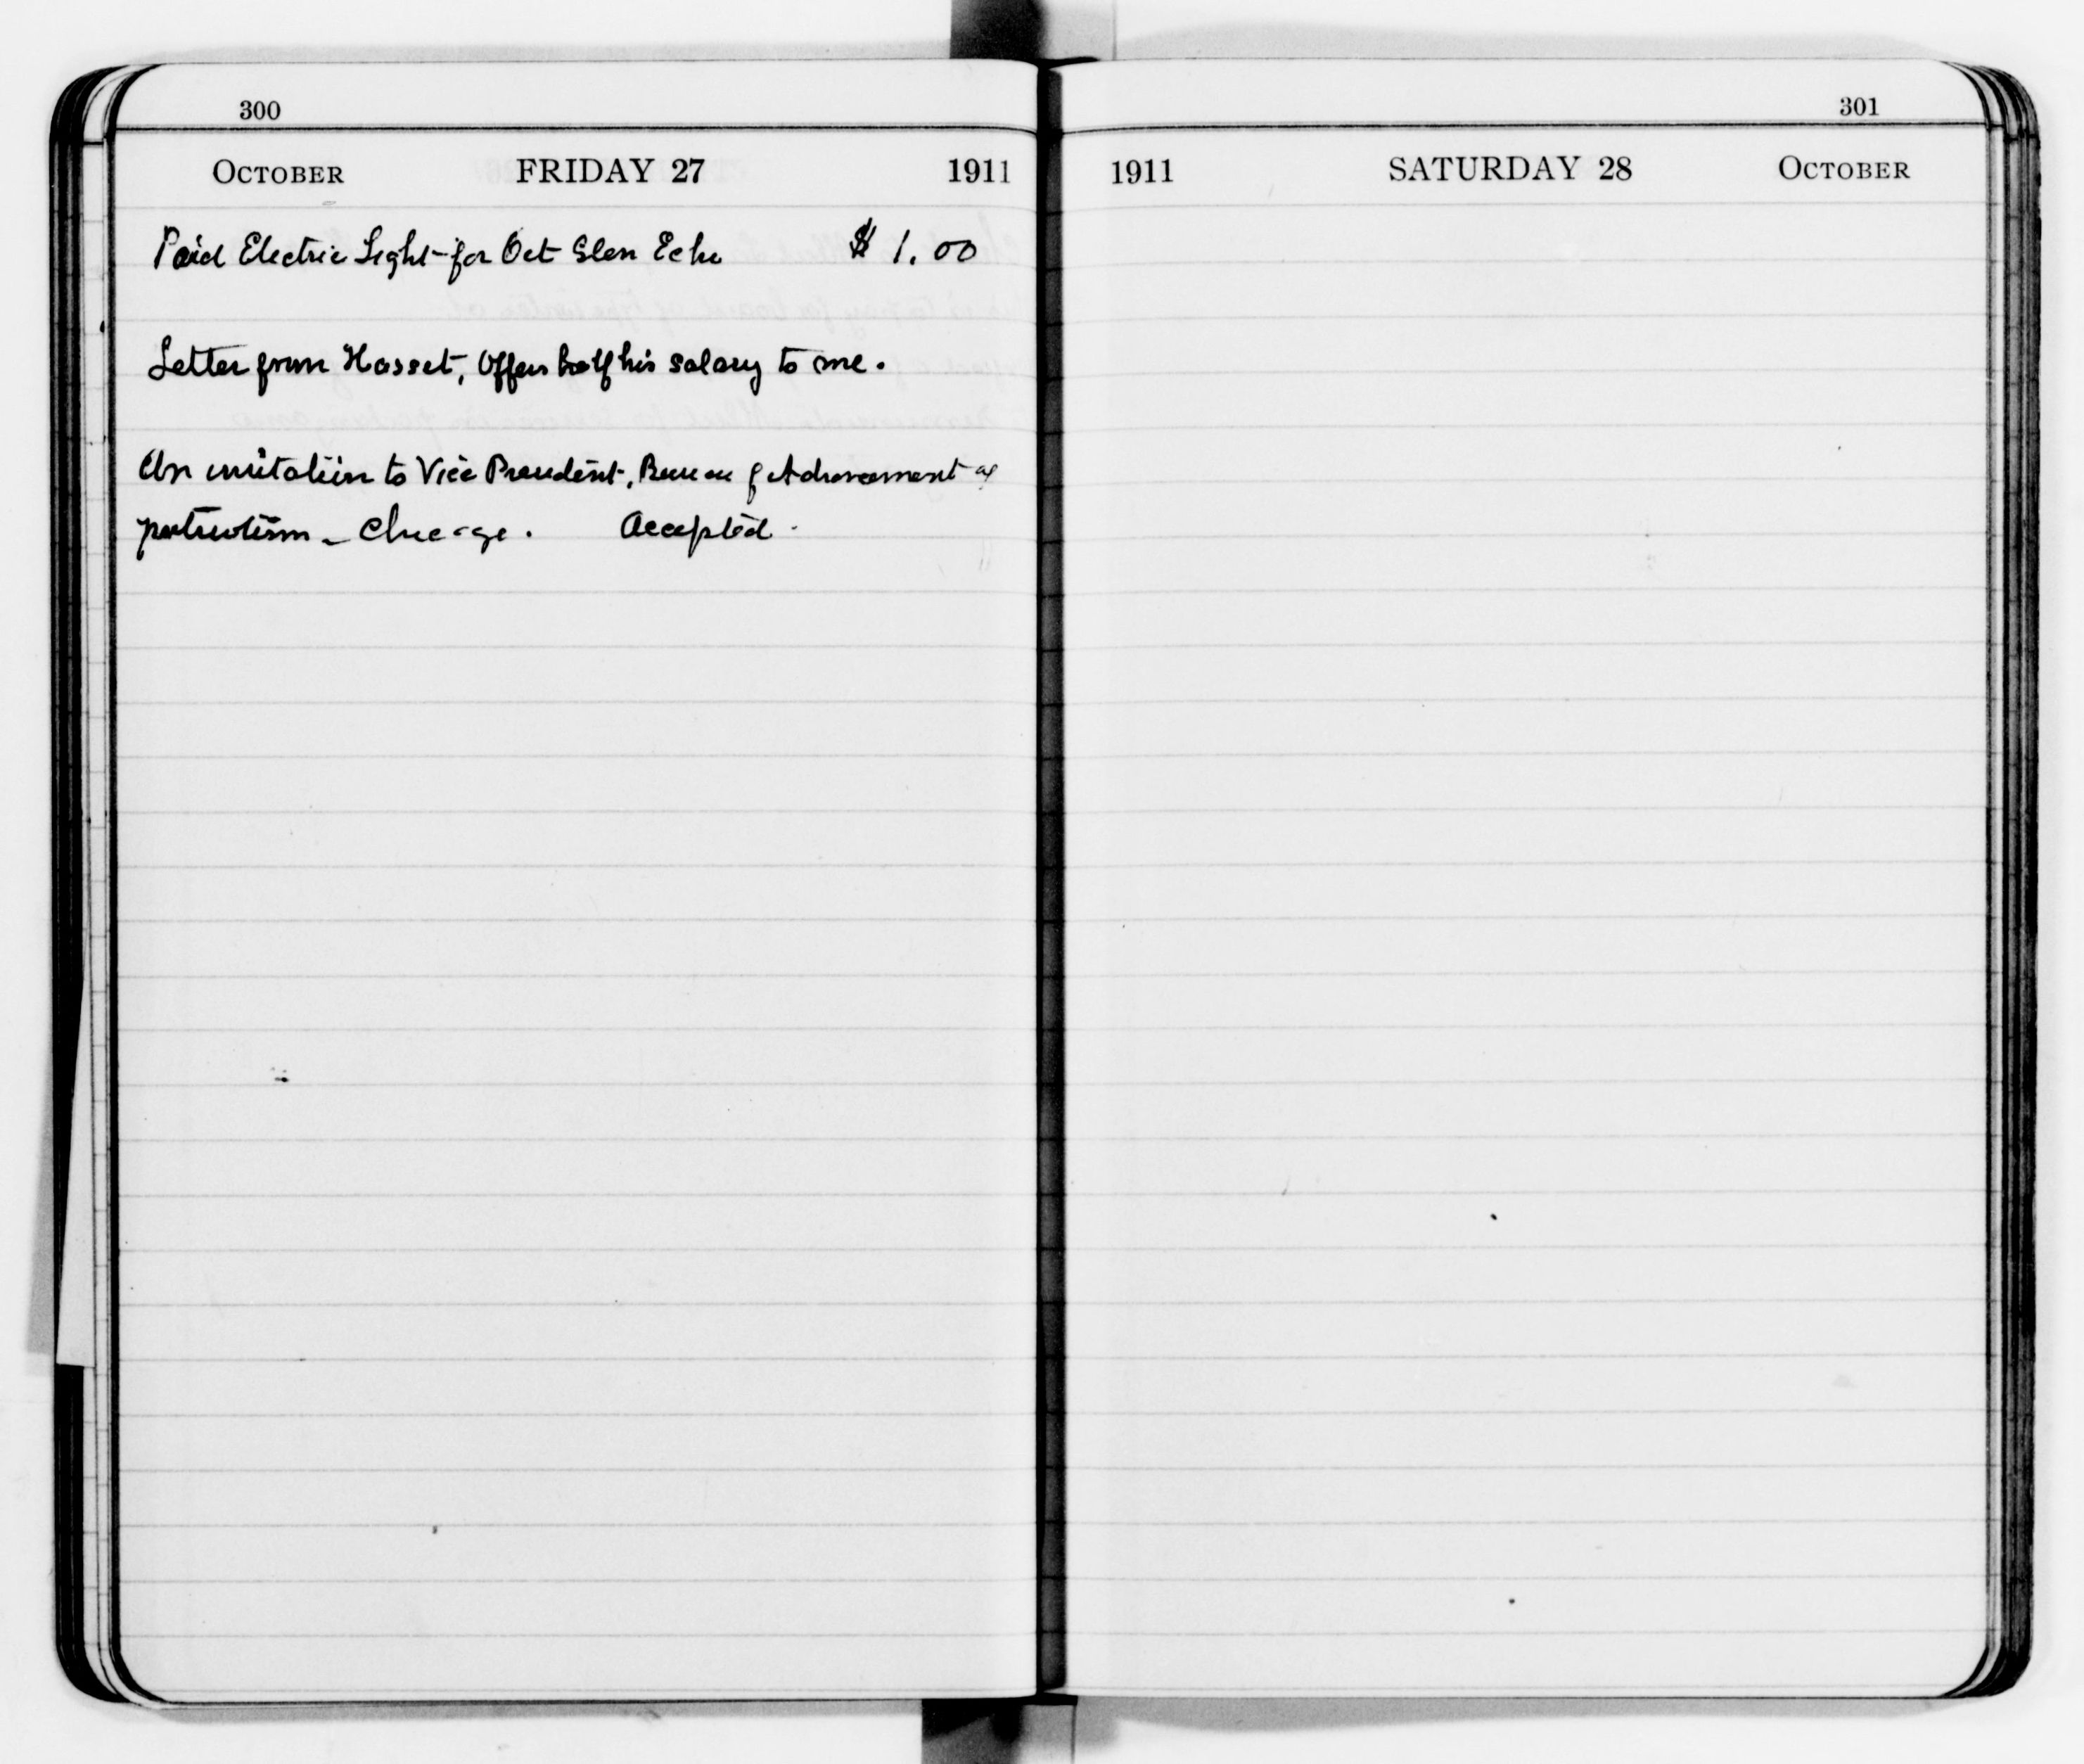 300
October FRIDAY 27 1911
Paid Electric Light for Oct Glen Echo $ 1.00
Letter from Hasset, Offers half his salary to me.
An invitation to Vice President, Bureau of Advancement of
patriotism – Chicago. Accepted.
301
1911 SATURDAY 28 October